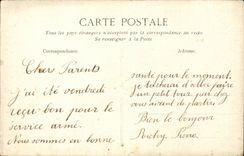 CARTE POSTALE
Tous les pays étrangers n'acceptent pas la correspondance au recto
Se renseigner à la Poste
Correspondance
Adresse
Cher Parents
j'ai été vendredi
reçu bon pour le
service armé.
Nous sommes en bonne
santé pour le moment.
je tâcherai d'aller faire
un petit tour, puis chez
vous avant de partir
Bien le bonjour